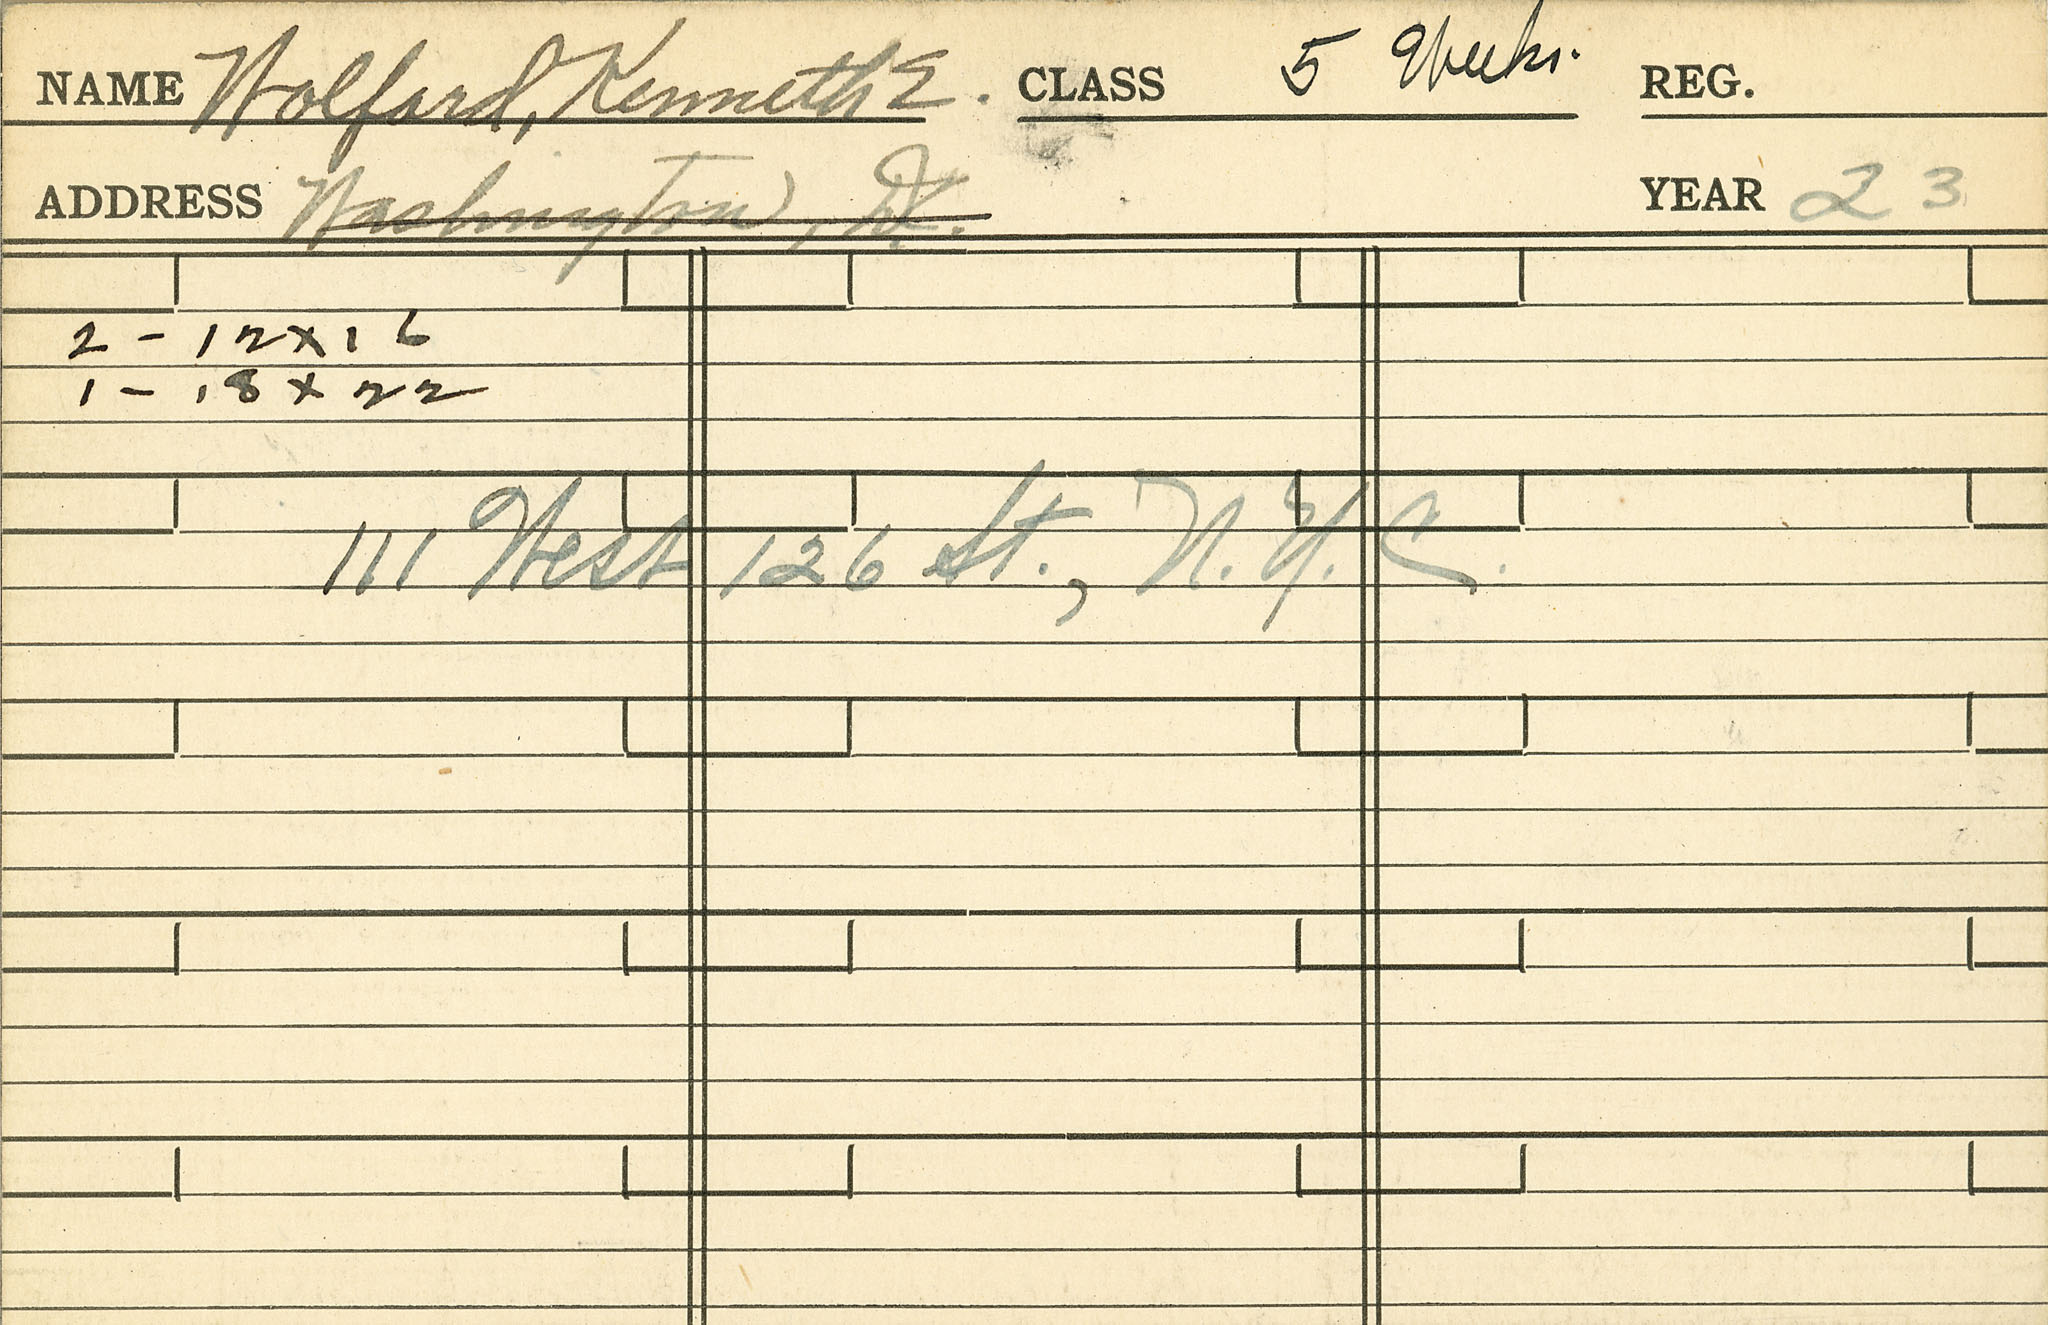 NAME Wolford, Kenneth E. CLASS 5 Weeks. REG.
ADDRESS Washington, D.C. YEAR 23
2 - 12 x 16
1 - 18 x 22
111 West 126 St., N.Y.C.